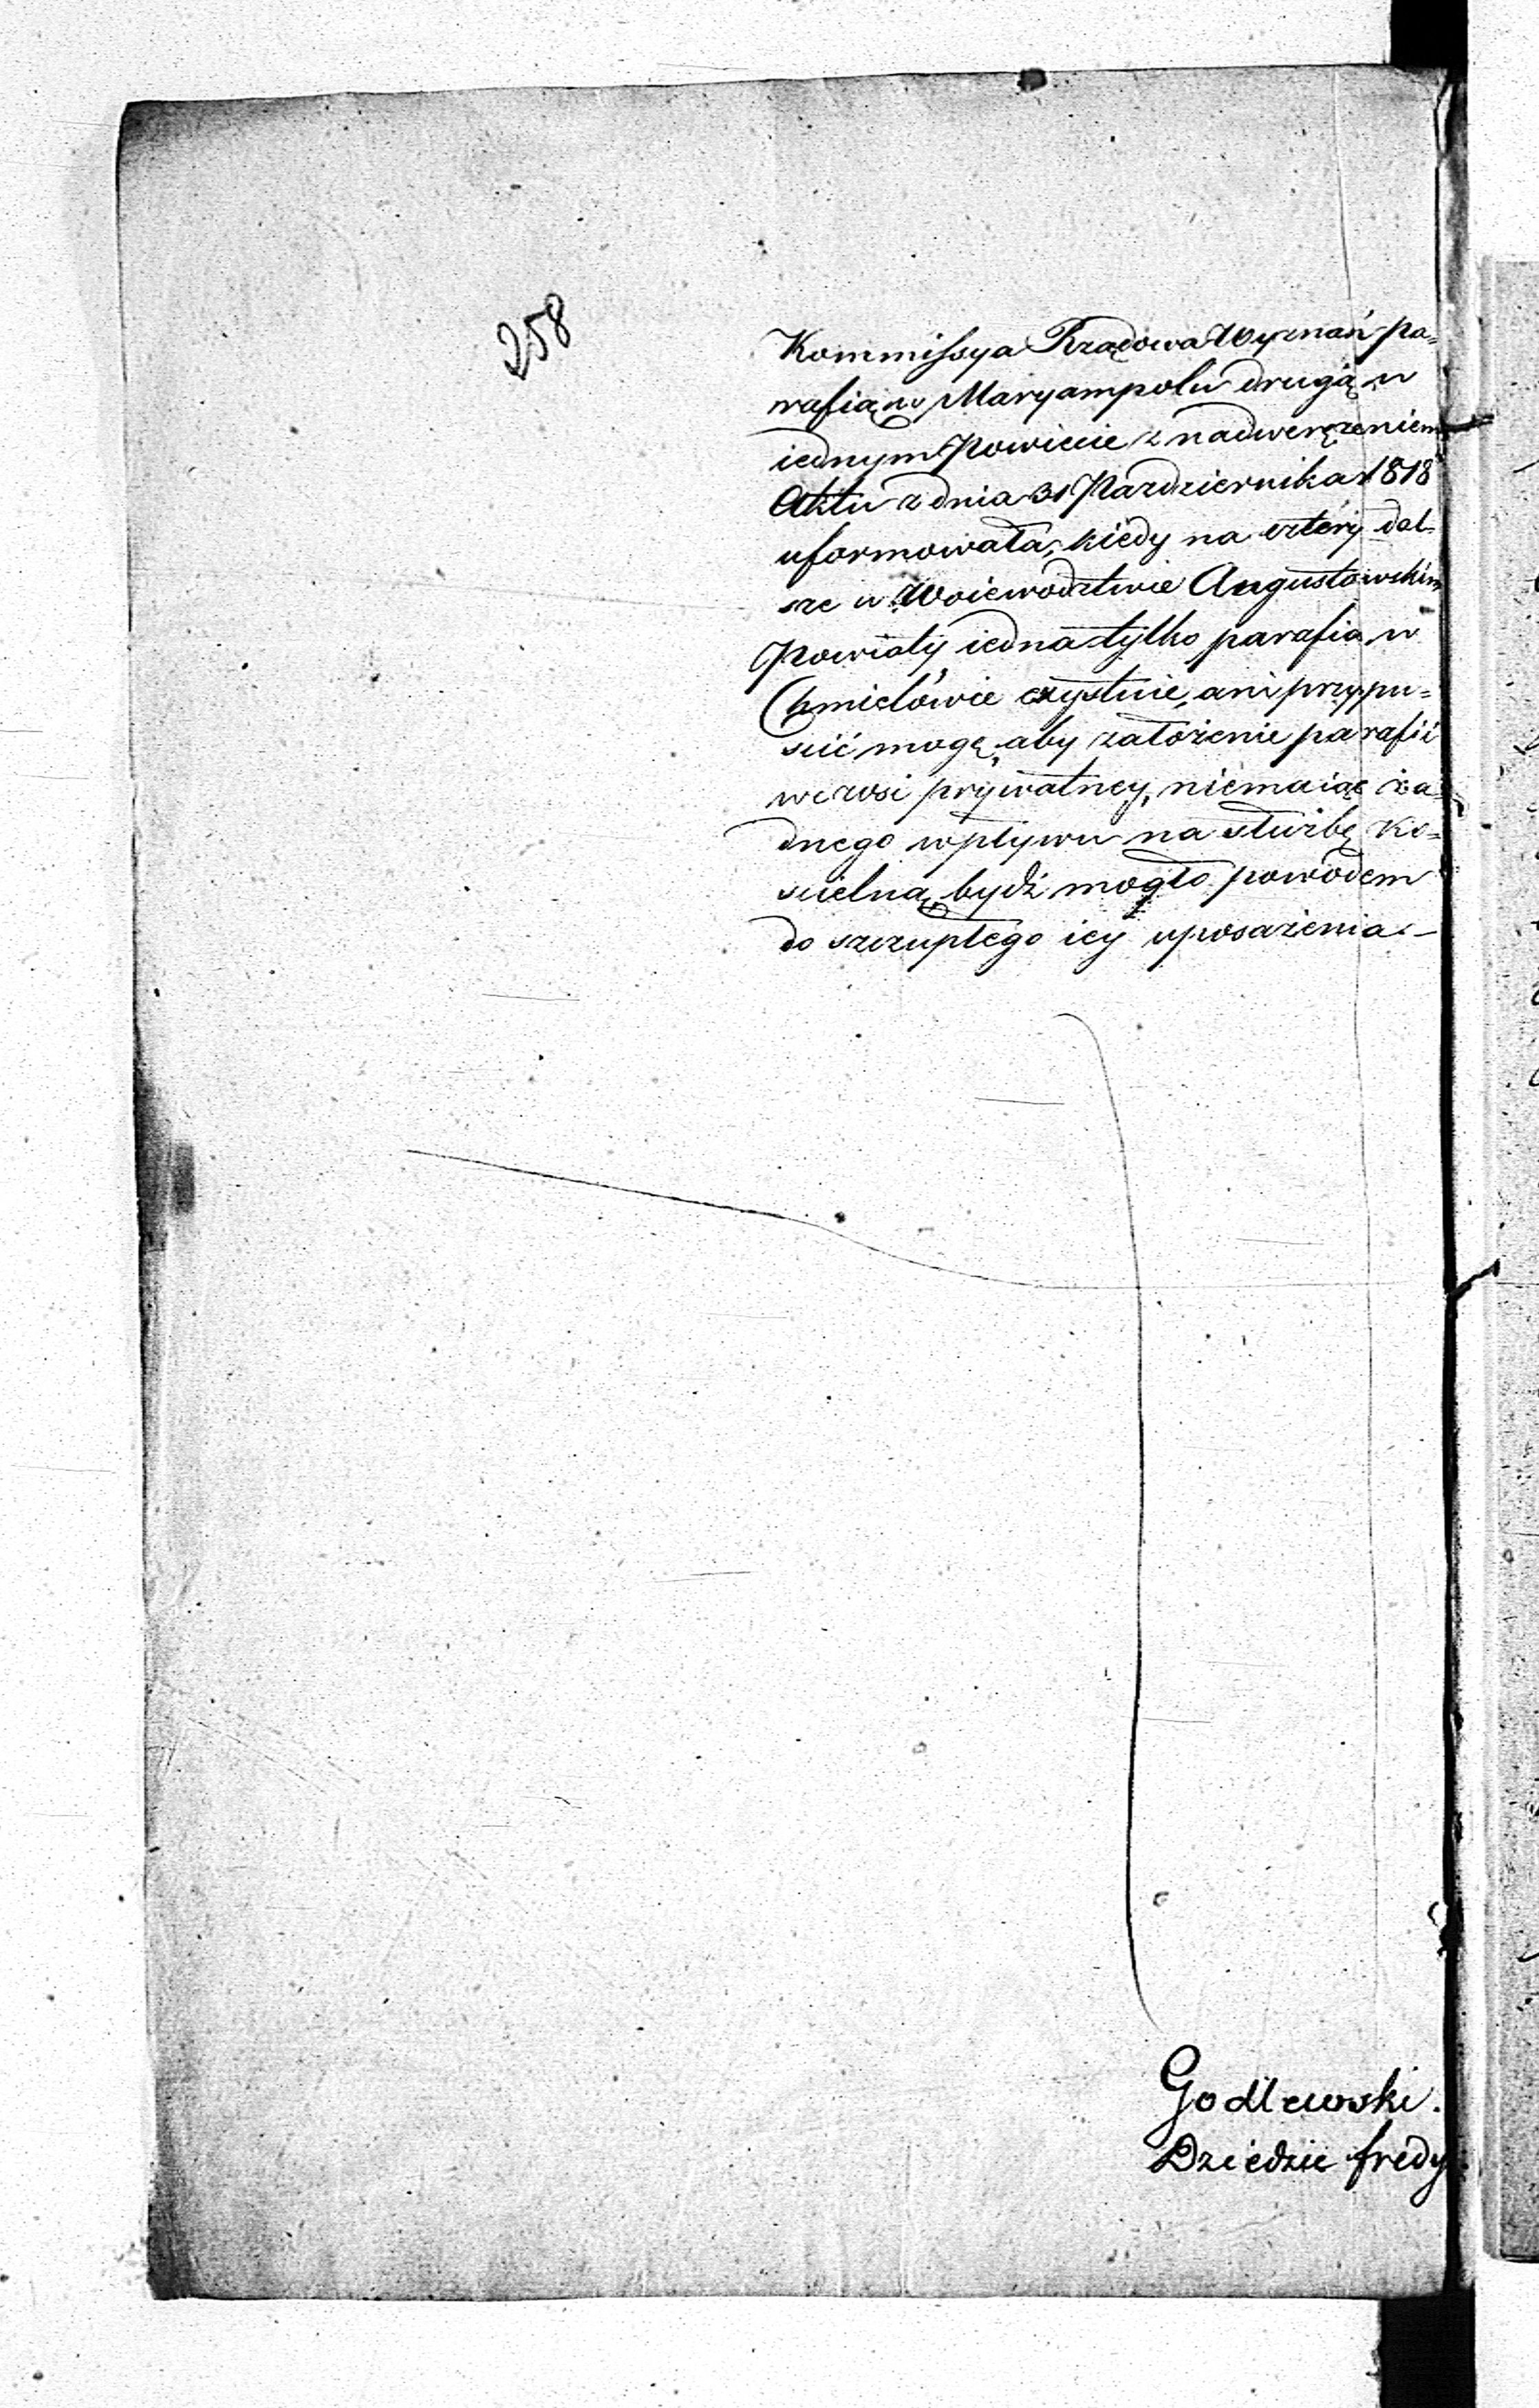 258
Kommissya Rządowa Wyznań pa=
rafią w Maryampolu drugą w
iednym Powiecie z nadwerężeniem
Aktu z dnia 31 Października 1818
uformowała, kiedy na cztery dal-
sze w Woiewodztwie Augustowskim
Powiaty iedna tylko parafia w
Chmielówie exystuie, ani przypu=
scić mogę, aby założenie parafii
we wsi prywatney, niemaiąc ża=
dnego wpływu na służbę ko=
scielną, bydź mogło powodem
do szczupłego iey uposażenia.-
Godlewski.
Dziedzic fredy